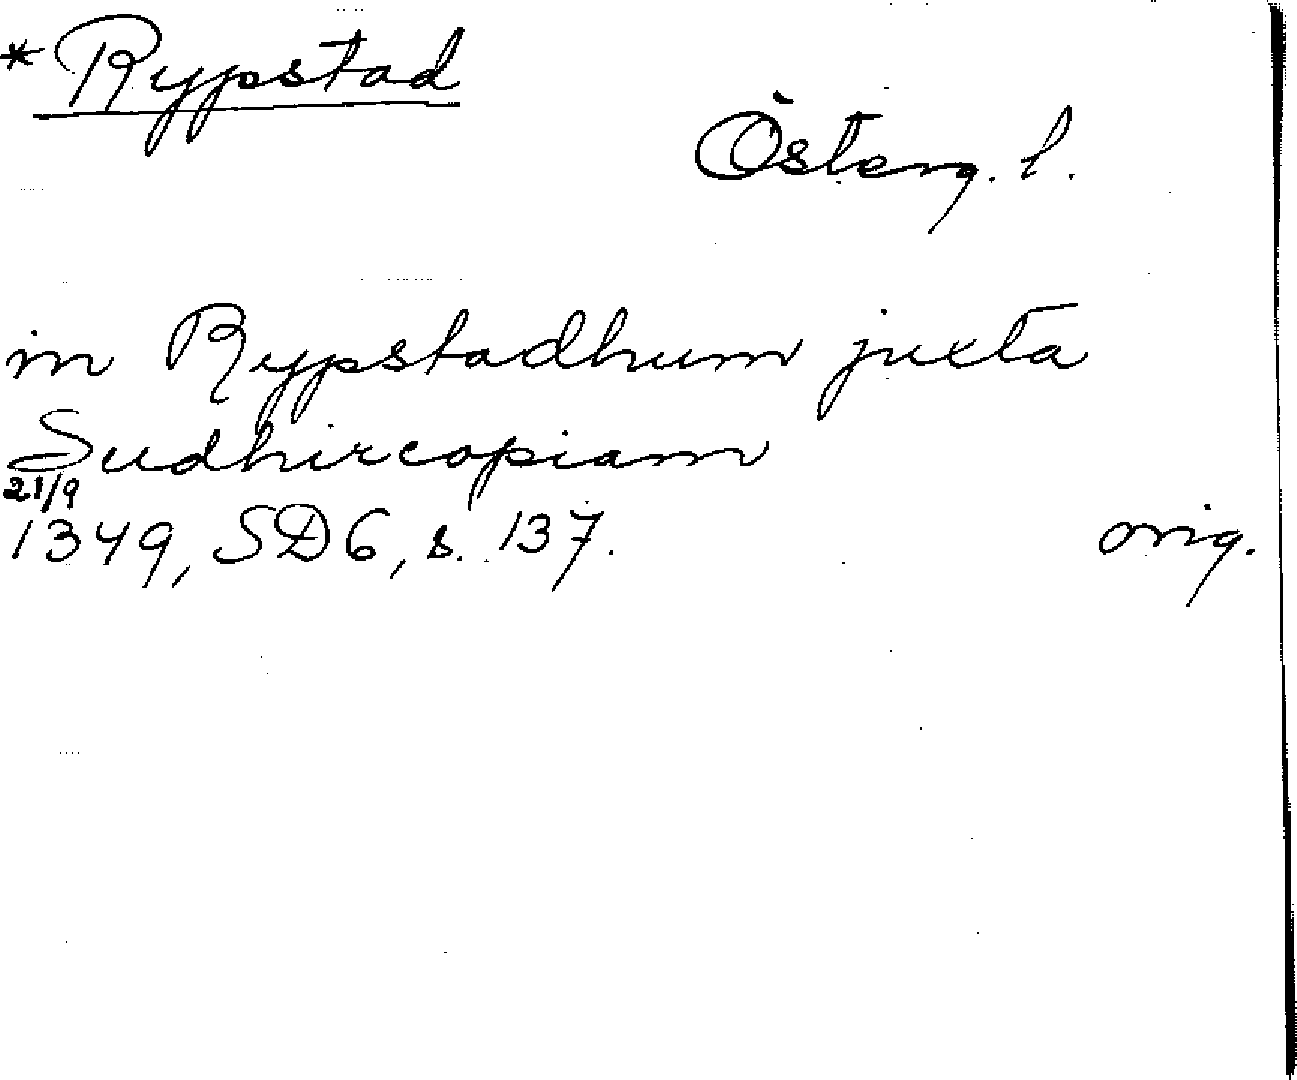 * Rypstad
Österg. l.
in Rypstadhum juxta
Sudhircopiam
21/9
1349, SD 6, s. 137.
orig.